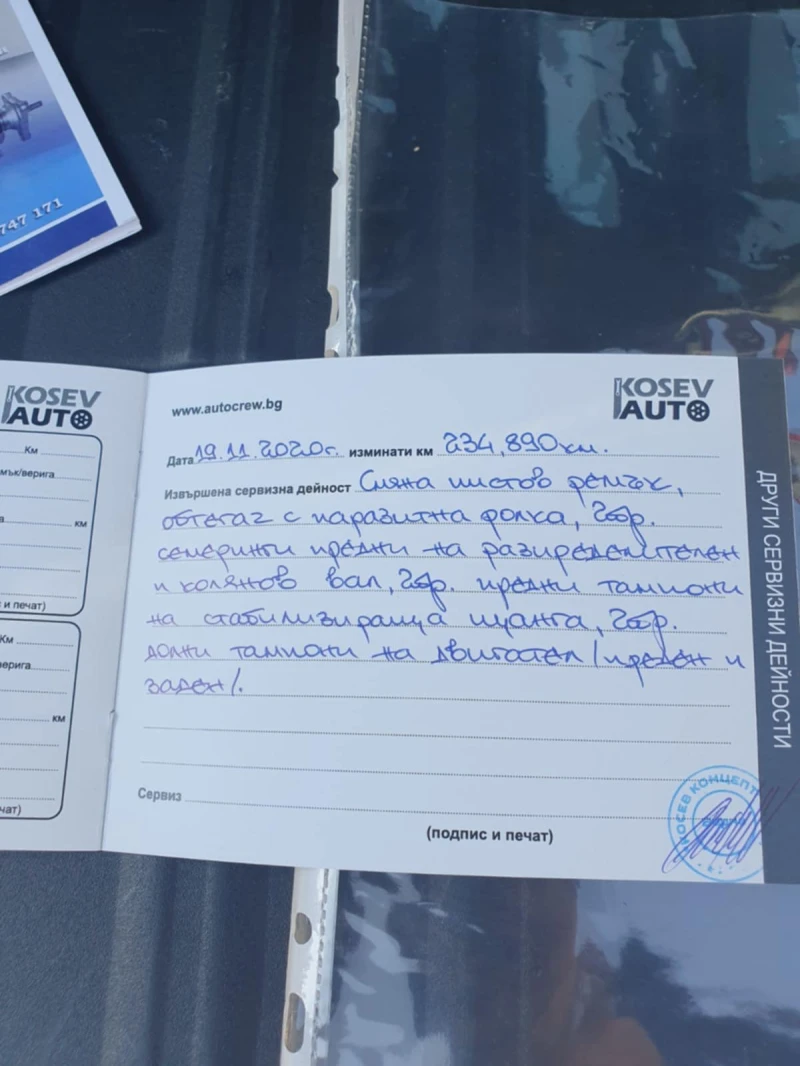 747 171
KOSEV
AUTO
Км
мък/верига
км
и печат)
Км
верига
км
чат)
www.autocrew.bg
KOSEV
AUTO
Дата 19.11.2020г. изминати км 234,890км.
Извършена сервизна дейност Смяна пистов ремък,
обтегач с паразитна ролка, 2бр.
семеринги предни на разпределителен
и колянов вал, 2бр. предни тампони
на стабилизираща щанга, 2бр.
долни тампони на двигател /преден и
заден/.
Сервиз
(подпис и печат)
КОСЕВ КОНЦЕПТ
ДРУГИ СЕРВИЗНИ ДЕЙНОСТИ